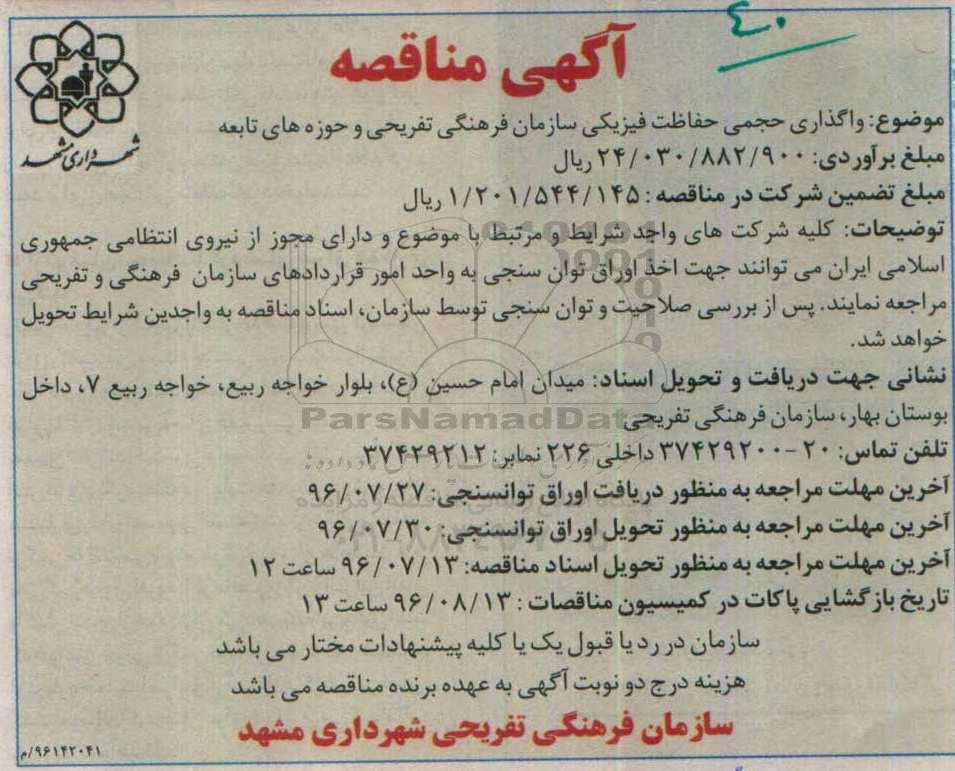 ۴۰
آگهی مناقصه
شهرداری مشهد
موضوع: واگذاری حجمی حفاظت فیزیکی سازمان فرهنگی تفریحی و حوزه های تابعه
مبلغ برآوردی: ۲۴/۰۳۰/۸۸۲/۹۰۰ ریال
مبلغ تضمین شرکت در مناقصه: ۱/۲۰۱/۵۴۴/۱۴۵ ریال
توضیحات: کلیه شرکت های واجد شرایط و مرتبط با موضوع و دارای مجوز از نیروی انتظامی جمهوری
اسلامی ایران می توانند جهت اخذ اوراق توان سنجی به واحد امور قراردادهای سازمان فرهنگی و تفریحی
مراجعه نمایند. پس از بررسی صلاحیت و توان سنجی توسط سازمان، اسناد مناقصه به واجدین شرایط تحویل
خواهد شد.
نشانی جهت دریافت و تحویل اسناد: میدان امام حسین (ع)، بلوار خواجه ربیع، خواجه ربیع ۷، داخل
بوستان بهار، سازمان فرهنگی تفریحی
ParsNamadData
تلفن تماس: ۲۰-۳۷۴۲۹۲۰۰ داخلی ۲۲۶ نمابر: ۳۷۴۲۹۲۱۲
آخرین مهلت مراجعه به منظور دریافت اوراق توانسنجی: ۹۶/۰۷/۲۷
آخرین مهلت مراجعه به منظور تحویل اوراق توانسنجی: ۹۶/۰۷/۳۰
آخرین مهلت مراجعه به منظور تحویل اسناد مناقصه: ۹۶/۰۷/۱۳ ساعت ۱۲
تاریخ بازگشایی پاکات در کمیسیون مناقصات: ۹۶/۰۸/۱۳ ساعت ۱۳
سازمان در رد یا قبول یک یا کلیه پیشنهادات مختار می باشد
هزینه درج دو نوبت آگهی به عهده برنده مناقصه می باشد
سازمان فرهنگی تفریحی شهرداری مشهد
۹۶۱۴۲۰۴۱/م